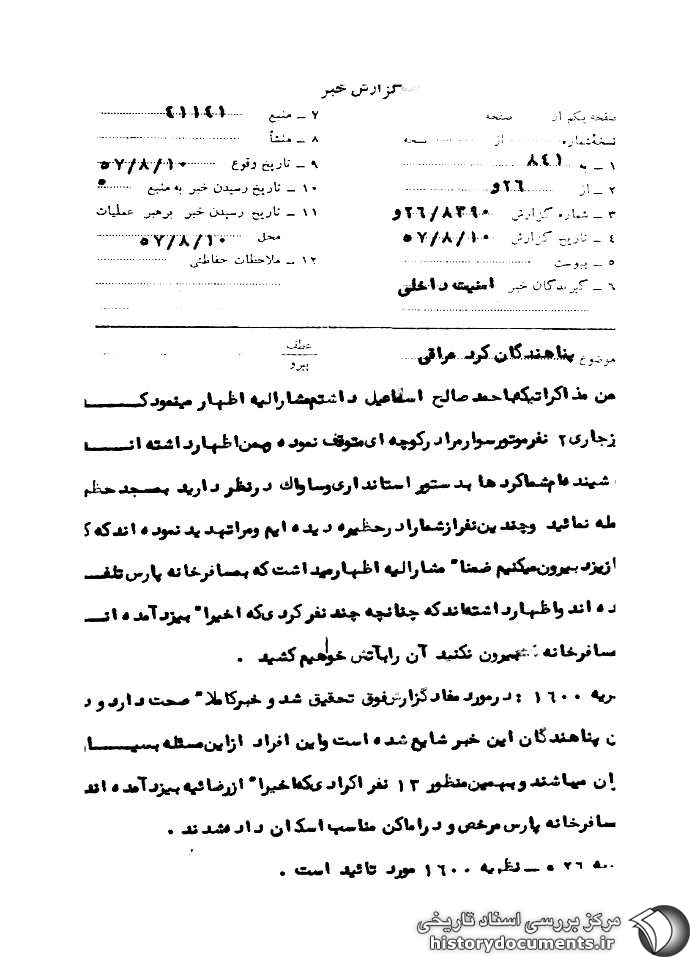 گزارش خبر
صفحه یکم از صفحه
نسخه شماره از نسخه
۱ ــ به ۸٤۱
۲ ــ از ۲٦و
۳ ــ شماره گزارش ۲٦/۸۳۹۰و
٤ ــ تاریخ گزارش ۵۷/۸/۱۰
۵ ــ پیوست
٦ ــ گیرندگان خبر امنیت داخلی
۷ ــ منبع ٤۱۱٤۱
۸ ــ منشأ
۹ ــ تاریخ وقوع ۵۷/۸/۱۰
۱۰ ــ تاریخ رسیدن خبر به منبع
۱۱ ــ تاریخ رسیدن خبر برهبر عملیات
محل ۵۷/۸/۱۰
۱۲ ــ ملاحظات حفاظتی
موضوع پناهندگان کرد عراقی
عطف
پیرو
من مذاکراتیکه باحمد صالح اسماعیل داشتم مشارالیه اظهار مینمود کـــه
زجاری ۲ نفر موتورسوار مرا در کوچه ای متوقف نموده و بمن اظهار داشته انـــ
شنیده ام شما کردها بدستور استانداری و ساواك در نظر دارید بمسجد حظ
مله نمائید و چندین نفر از شما را در حظیره دیده ایم و مرا تهدید نموده اند که ک
از یزد بیرون میکنیم ضمنا" مشارالیه اظهار میداشت که بمسافرخانه پارس تلفـ
ده اند و اظهار داشته اند که چنانچه چند نفر کردی که اخیرا" بیزد آمده انـــ
مسافرخانه بیرون نکنید آن را بآتش خواهیم کشید .
ریه ۱٦۰۰ : در مورد مفاد گزارش فوق تحقیق شد و خبر کاملا" صحت دارد و د
ن پناهندگان این خبر شایع شده است و این افراد از این مسئله بسیـــار
ان میباشند و بهمین منظور ۱۳ نفر اکرادی که اخیرا" از رضائیه بیزد آمده اند
مسافرخانه پارس مرخص و در اماکن مناسب اسکان داده شدند .
یه ۲٦ ه ــ نظریه ۱٦۰۰ مورد تائید است .
مرکز بررسی اسناد تاریخی
historydocuments.ir